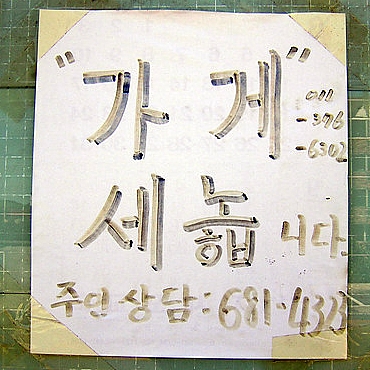 "가 게"
011
-376
-6302
세 놓ㅂ니다.
주인 상담: